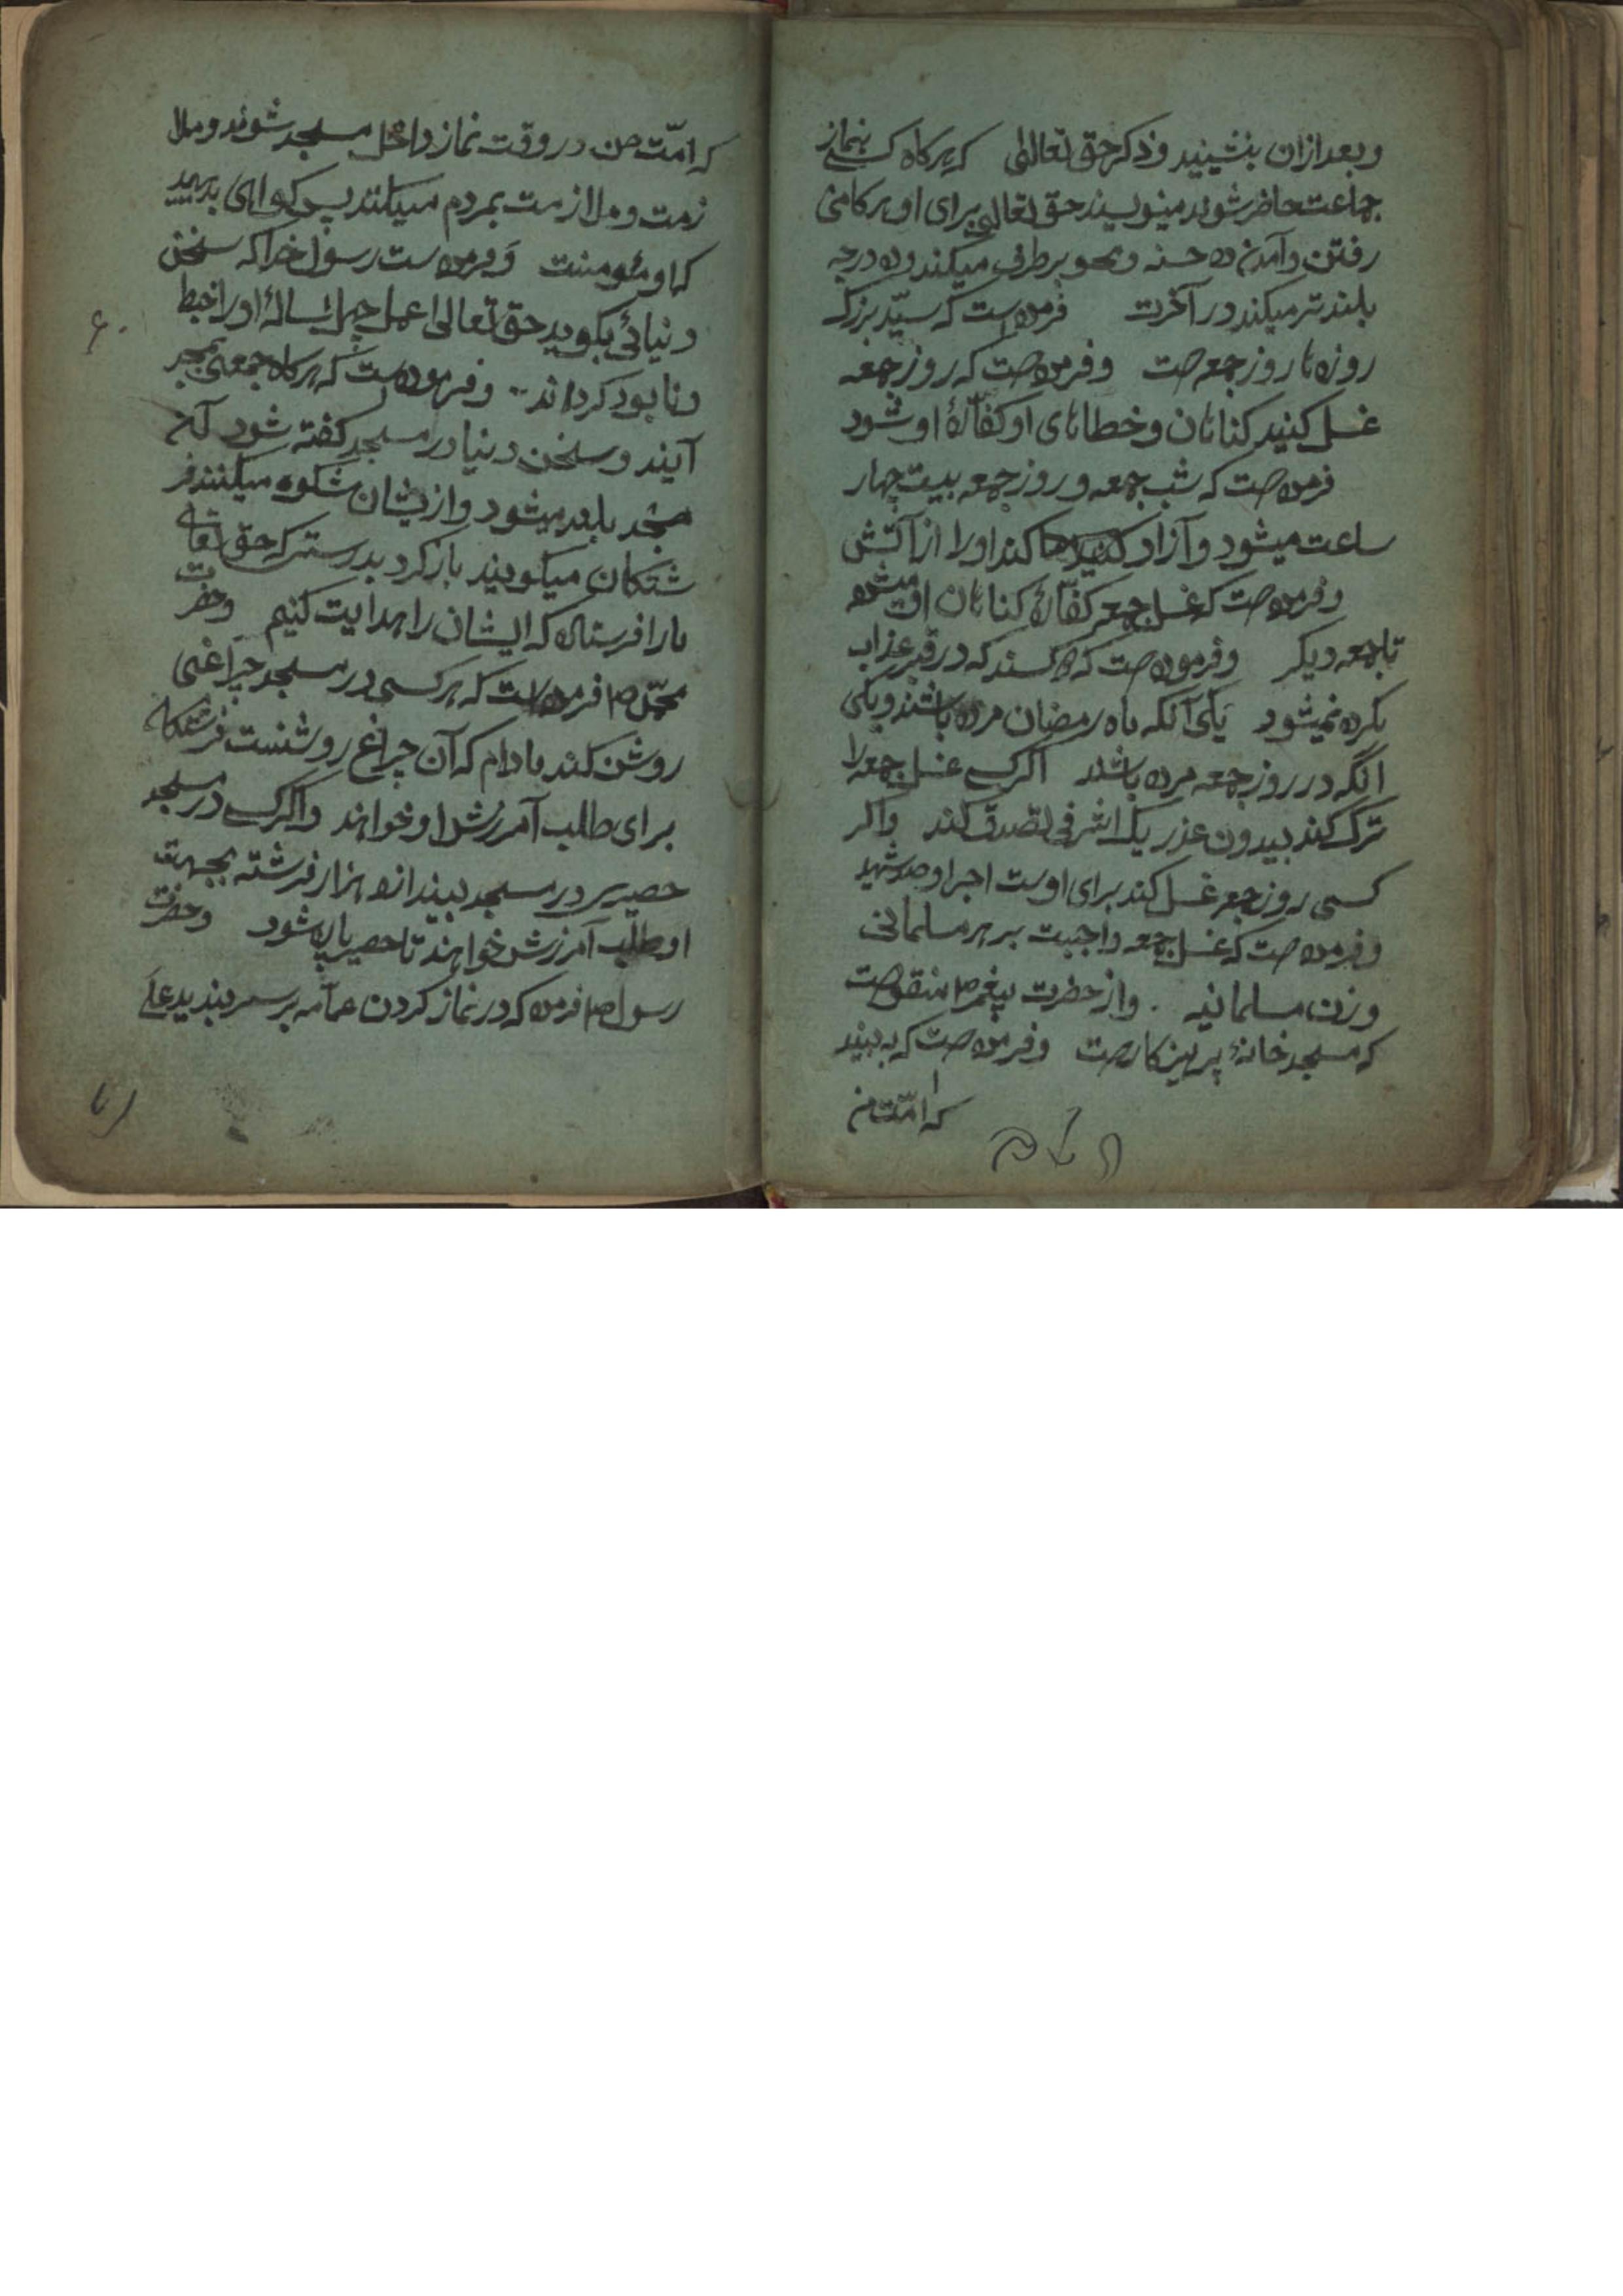 و بعد ازان بنشینید و ذکر حق تعالی که هرکاه کسے بنماز
جماعت حاضر شوند مینویسند حق تعالی برای او هر کامی
رفتن و آمدن ده حسنه و محو بر طرف میکند و ده درجه
بلند تر میکند در آخرت فرموده است که سیّد بزرک
روزها روز جمعه است و فرموده است که روز جمعه
غسل کنید کناهان و خطاهای او کفّارهٔ او شود
فرموده است که شب جمعه و روز جمعه بیست چهار
ساعت میشود و آزاد کند او را از آتش
و فرموده است که غسل جمعه کفّارهٔ کناهان او میشود
تا جمعه دیکر و فرموده است که کسند که در قبر عذاب
بکرده نمیشود یکی آنکه ماه رمضان مرده باشند و یکی
انکه در روز جمعه مرده باشد اکر کسے غسل جمعه را
ترک کند بیدون عذر یک اشرفی تصدق کند و اکر
کسی روز جمعه غسل کند برای اوست اجر او صد شهید
و فرموده است که غسل جمعه واجبست بر هر مسلمانی
و زن مسلمانیه . و از حضرت پیغمبر ص منقولست
که مسجد خانهٔ پرهیزکار است و فرموده است که به بیند
که امّت من
که امّت من در وقت نماز داخل مسجد شوند و ملا
زمت و ملازمت بمردم میکنند پس کواهی بدهید
که او مئومنست و فرموده است رسول خدا که سخن
دنیائی بکوید حق تعالی عمل چهل ساله او را خبط
و نابود کرداند .. و فرموده است که هرکاه جمعی بمسجد
آیند و سخن دنیا در مسجد کفته شود آن
مسجد بلند میشود و از یشان شکوه میکنند فر
شتکان میکویند باز کرد بدرستیکه حق تعالی
ما را فرستاده که ایشان را هدایت کنیم و حضرت
محمّد ص فرموده است که هر کسی در مسجد چراغی
روشن کند مادام که آن چراغ روشنست فرشتکان
برای طلب آمرزش او خواهند و اکر کسے در مسجد
حصیری در مسجد بیندازد هزار فرشته بجهت
او طلب آمرزش خواهند تا حصیر پاره شود و حضرت
رسول ص فرموده که در نماز کردن عمامه بر سر بندید علی
۶۰